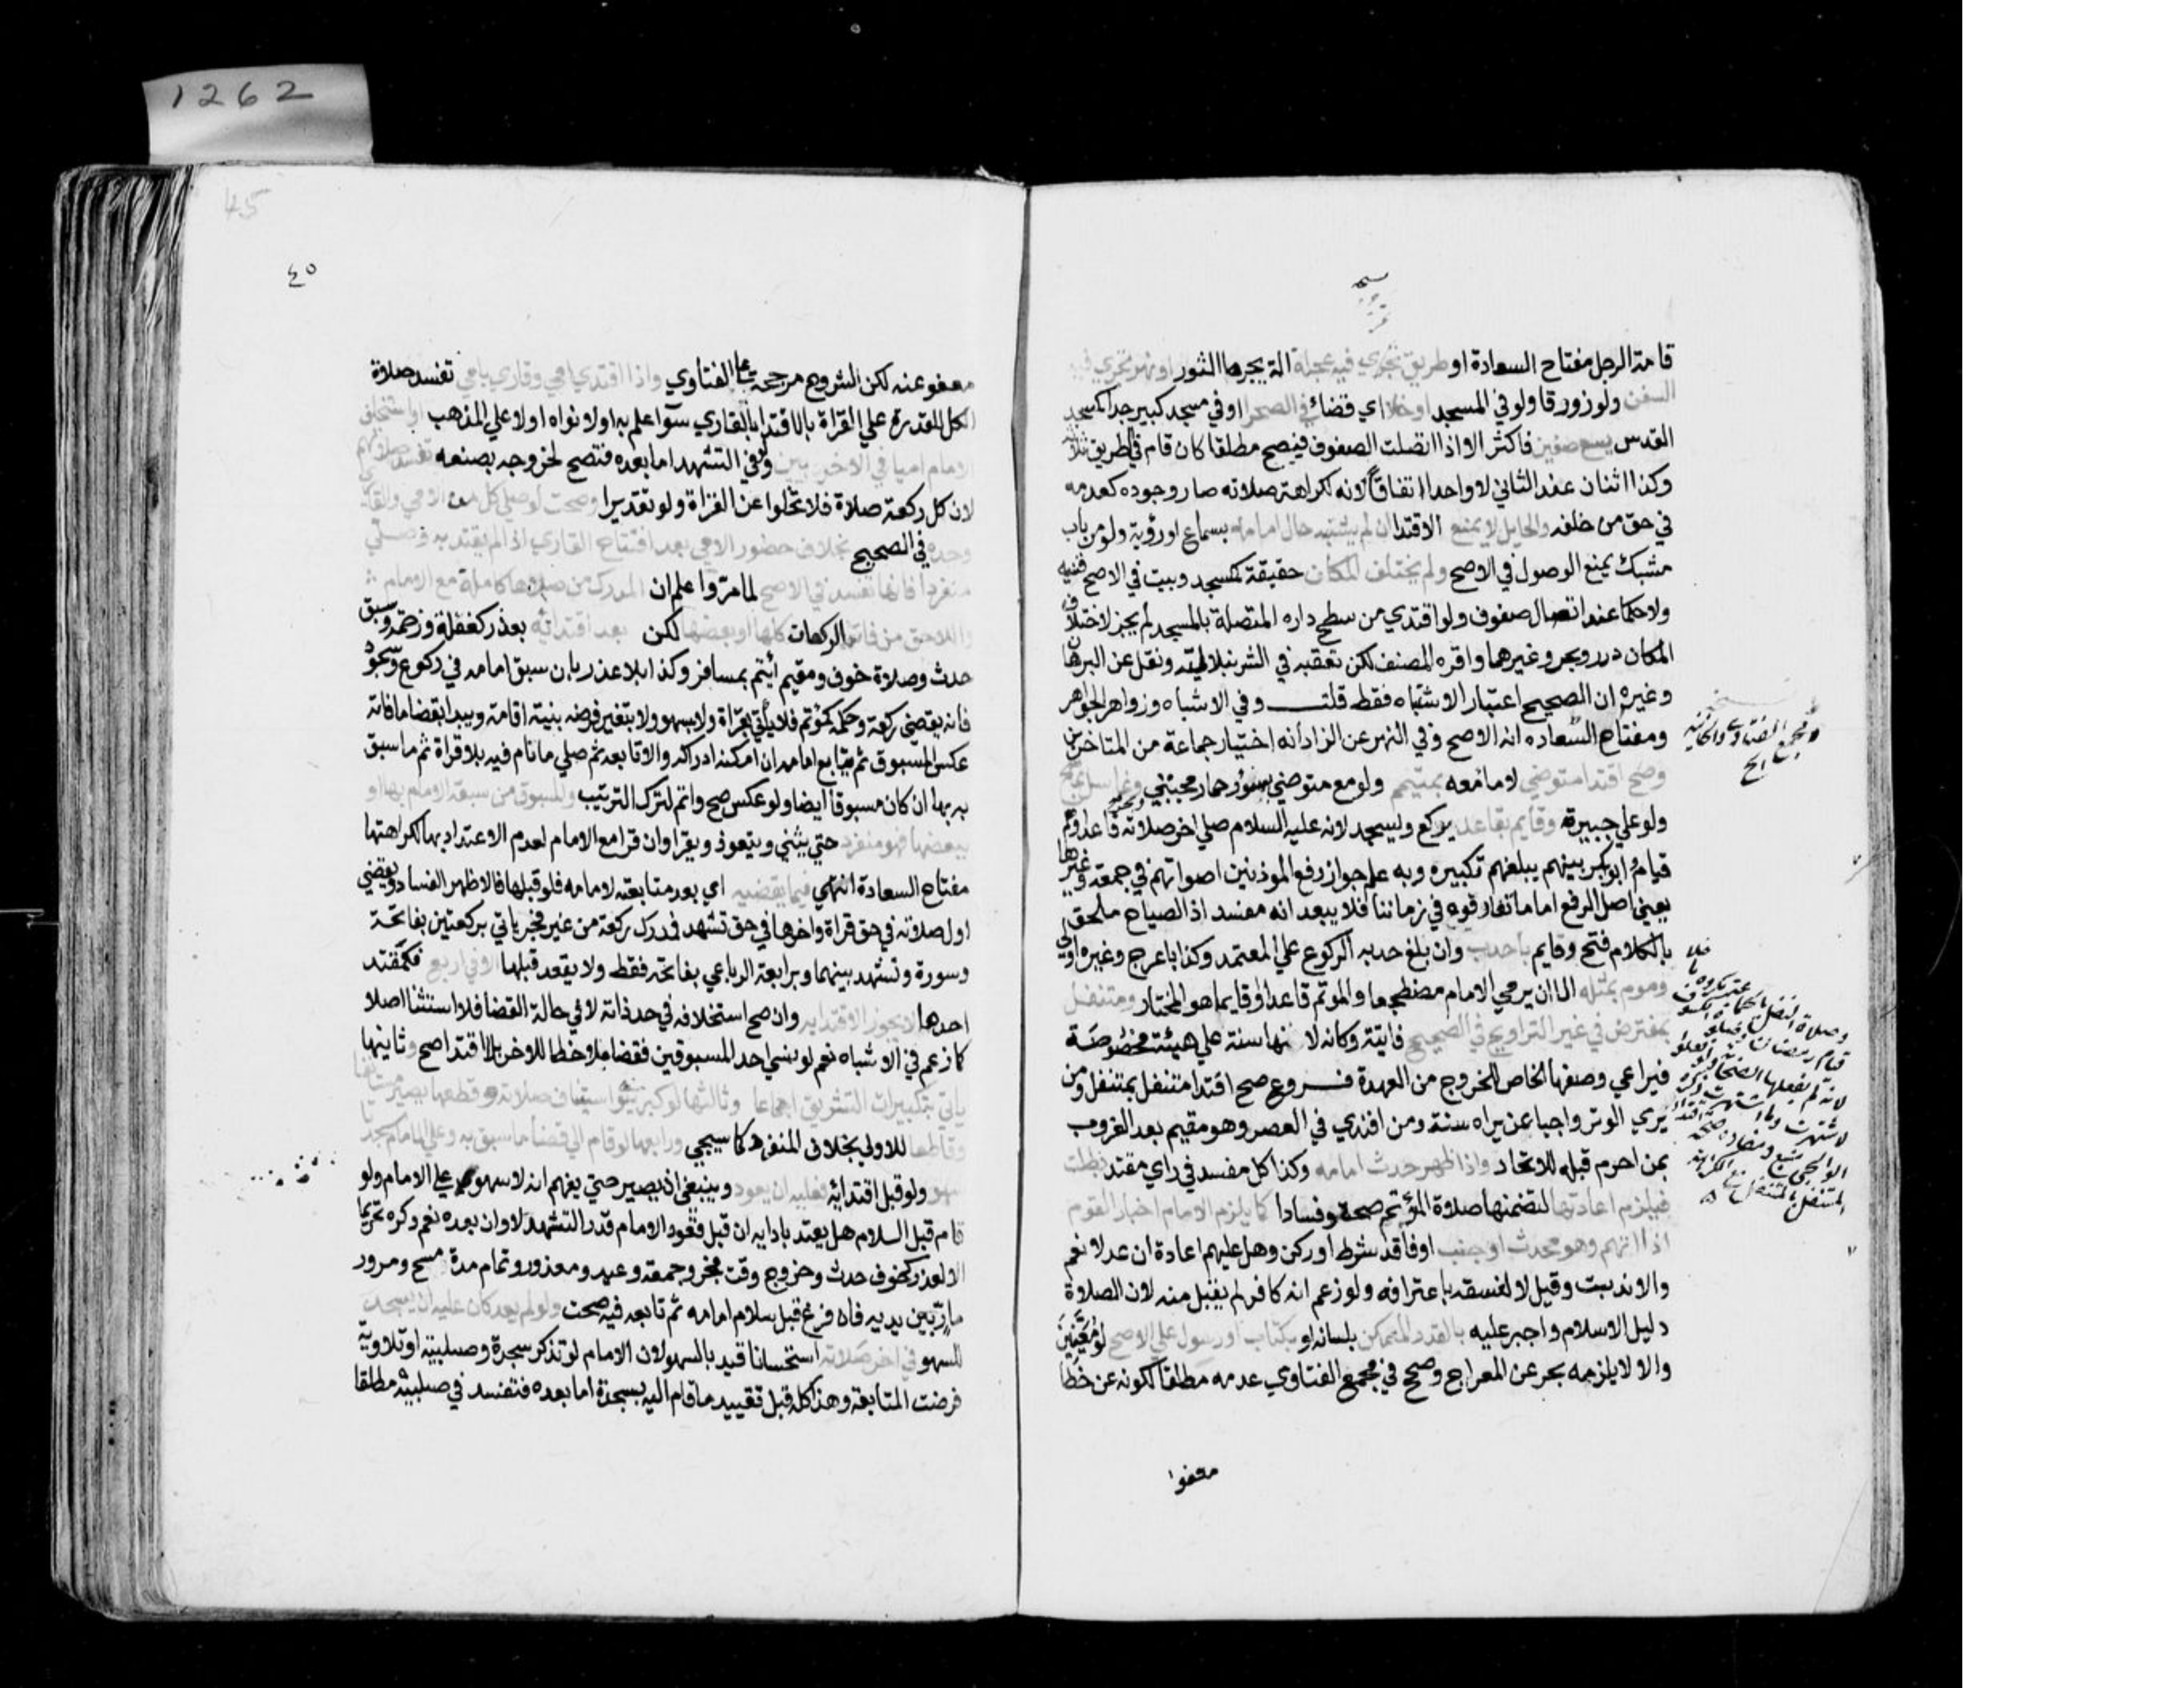 1262
45
٤٥
قامة الرجل مفتاح السعادة او طريق تجري فيه عجلة الة يجرها الثور او نهر تجري فيه
السفن ولو زورقا ولو في المسجد او خلا اي فضاء في الصحرا او في مسجد كبير جدا كمسجد
القدس يسع صفين فاكثر الا اذا اتصلت الصفوف فيصح مطلقا كان قام في الطريق ثلاثة
وكذا اثنان عند الثاني لا واحدا اتفاقا لانه لكراهة صلاته صار وجوده كعدمه
في حق من خلفه والحايل لا يمنع الاقتدا ان لم يشتبه حال امامه بسماع او رؤية ولو من باب
مشبك يمنع الوصول في الاصح ولم يختلف المكان حقيقة كمسجد وبيت في الاصح قنيه
ولا حكما عند اتصال صفوف ولو اقتدي من سطح داره المتصلة بالمسجد لم يجز لاختلاف
المكان درر وبحر وغيرهما واقره المصنف لكن تعقبه في الشرنبلالية ونقل عن البرهان
وغيره ان الصحيح اعتبار الاشتباه فقط قلت وفي الاشباه وزواهر الجواهر
ومفتاح السعاده انه الاصح وفي النهر عن الزاد أنه اختيار جماعة من المتاخرين
وصح اقتدا متوضي لا ما معه بمتيمم ولو مع متوضي بسؤر حمار مجتبي وغاسل بماسح
ولو علي جبيرة وقايم بقاعد يركع ويسجد لانه عليه السلام صلي اخر صلاته قاعدا وهم
قيام وابو بكر بينهم يبلغهم تكبيره وبه علم جواز رفع الموذنين اصواتهم في جمعة وغيرها
يعني اصل الرفع اما ما تعارفوه في زماننا فلا يبعد انه مفسد اذ الصياح ملحق
بالكلام فتح وقايم بأحدب وان بلغ حدبه الركوع علي المعتمد وكذا باعرج وغيره اولي
وموم بمثله الا ان يومي الامام مضطجعا والموتم قاعدا او قايما هو المختار ومتنفل
بمفترض في غير التراويح في الصحيح فانية وكانه لانها سنة علي هيئة مخصوصة
فيراعي وصفها الخاص للخروج من العهدة فروع صح اقتدا متنفل بمتنفل ومن
يري الوتر واجبا بمن يراه سنة ومن اقتدي في العصر وهو مقيم بعد الغروب
بمن احرم قبله للاتحاد واذا ظهر حدث امامه وكذا كل مفسد في راي مقتد بطلت
فيلزم اعادتها لتضمنها صلاة المؤتم صحة وفسادا كما يلزم الامام اخبار القوم
اذا امهم وهو محدث او جنب او فاقد شرط او ركن وهل عليهم اعادة ان عدلا نعم
والا ندبت وقيل لا لفسقه باعترافه ولو زعم انه كافر لم يقبل منه لان الصلاة
دليل الاسلام واجبر عليه بالقدر الممكن بلسانه او بكتاب او رسول علي الاصح لو معينين
والا لا يلزمه بحر عن المعراج وصحح في مجمع الفتاوي عدمه مطلقا لكونه عن خطا
معفوا
ومجمع الفتاوي والخانية
معفو عنه لكن الشروح مرجحة علي الفتاوي واذا اقتدي امي وقاري بامي تفسد صلاة
الكل للقدرة علي القراة بالاقتدا بالقاري سوآ علم به او لا نواه او لا علي المذهب او استخلف
الامام اميا في الاخريين ولو في التشهد اما بعده فتصح لخروجه بصنعه تفسد صلاتهم
لان كل ركعة صلاة فلا تخلوا عن القراة ولو تقديرا وصحت لو صلي كل من الامي والقاري
وحده في الصحيح بخلاف حضور الامي بعد افتتاح القاري اذا لم يقتد به وصلي
منفردا فانها تفسد في الاصح لما مر واعلم ان المدرك من صلاها كاملة مع الامام
واللاحق من فاته الركعات كلها او بعضها لكن بعد اقتدائه بعذر كغفلة وزحمة وسبق
حدث وصلاة خوف ومقيم أيتم بمسافر وكذا بلا عذر بان سبق امامه في ركوع وسجود
فانه يقضي ركعة وحكمه كمؤتم فلا يأتي بقراة ولا بسهو ولا يتغير فرضه بنية اقامة ويبدا بقضا ما فاته
عكس المسبوق ثم يتابع امامه ان امكنه ادراكه والا تابعه ثم صلي ما نام فيه بلا قراة ثم ما سبق
به بها ان كان مسبوقا ايضا ولو عكس صح واثم لترك الترتيب والمسبوق من سبقه الامام بها او
ببعضها فهو منفرد حتي يثني ويتعوذ ويقرا وان قرا مع الامام لعدم الاعتداد بها لكراهتها
مفتاح السعادة انتهي فيما يقضيه اي بعد متابعته لامامه فلو قبلها فالاظهر الفساد ويقضي
اول صلاته في حق قراة واخرها في حق تشهد فمدرك ركعة من غير فجر ياتي بركعتين بفاتحة
وسورة وتشهد بينهما وبرابعة الرباعي بفاتحة فقط ولا يقعد قبلها الا في اربع فكمقتد
احدها لا يجوز الاقتدا به وان صح استخلافه في حد ذاته لا في حالة القضا فلا استثنا اصلا
كما زعم في الاشباه نعم لو نسي احد المسبوقين فقضا ملاحظا للاخر بلا اقتدا صح وثانيها
ياتي بتكبيرات التشريق اجماعا وثالثها لو كبر ينوي استيناف صلاته وقطعها يصير مستانفا
وقاطعا للاولي بخلاف المنفرد كما سيجي ورابعها لو قام الي قضا ما سبق به وعلي الامام سجدتا
سهو ولو قبل اقتدائه فعليه ان يعود وينبغي ان يصبر حتي يفهم انه لا سهو علي الامام ولو
قام قبل السلام هل يعتد بادايه ان قبل قعود الامام قدر التشهد لا وان بعده نعم وكره تحريما
الا لعذر كخوف حدث وخروج وقت فجر وجمعة وعيد ومعذور وتمام مدة مسح ومرور
مار بين يديه فان فرغ قبل سلام امامه ثم تابعه فيه صحت ولو لم يعد كان عليه ان يسجد
للسهو في اخر صلاته استحسانا قيد بالسهو لان الامام لو تذكر سجدة وصلبية او تلاوية
فرضت المتابعة وهذا كله قبل تقييد ما قام اليه بسجدة اما بعده فتفسد في صلبية مطلقا